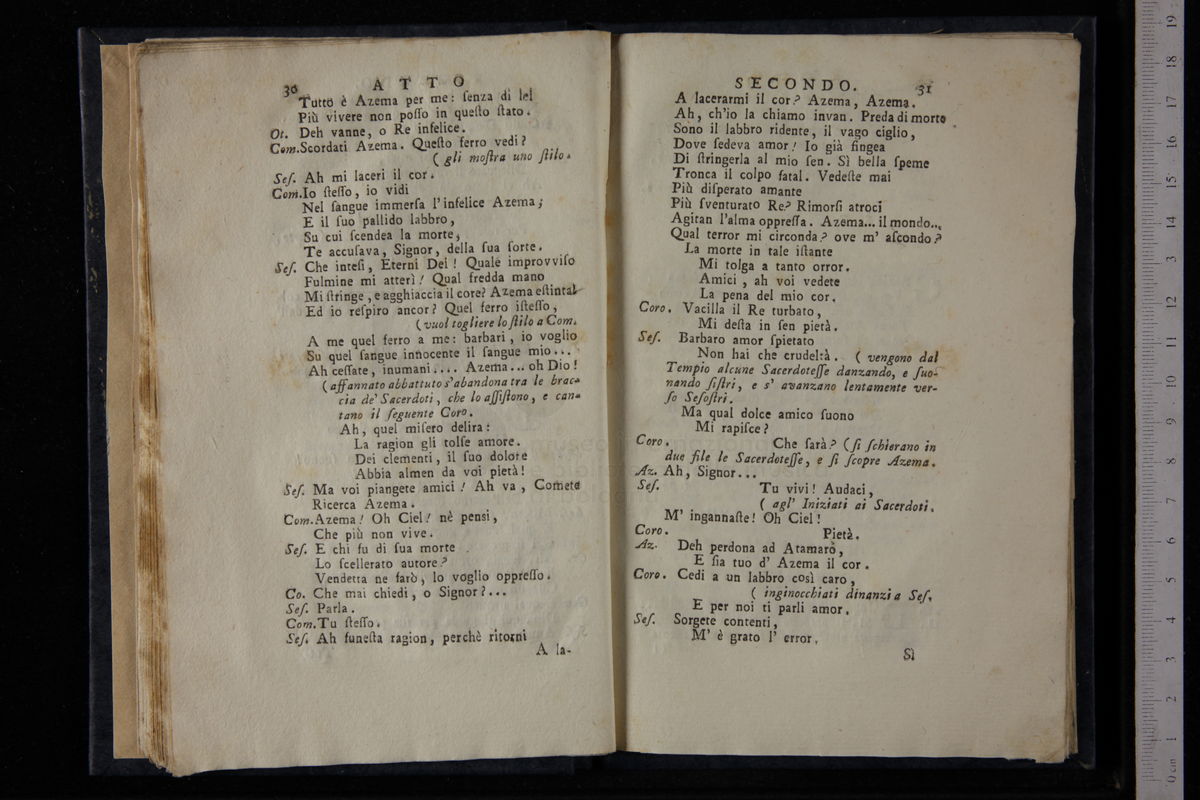 30 ATTO
Tutto è Azema per me: ſenza di lei
Più vivere non poſſo in queſto ſtato.
Ot. Deh vanne, o Re infelice.
Com. Scordati Azema. Queſto ferro vedi?
( gli moſtra uno ſtilo.
Seſ. Ah mi laceri il cor.
Com. Io ſteſſo, io vidi
Nel ſangue immerſa l'infelice Azema;
E il ſuo pallido labbro,
Su cui ſcendea la morte,
Te accuſava, Signor, della ſua ſorte.
Seſ. Che inteſi, Eterni Dei! Quale improvviſo
Fulmine mi atterì! Qual fredda mano
Mi ſtringe, e agghiaccia il core? Azema eſtinta!
Ed io reſpiro ancor? Quel ferro iſteſſo,
(vuol togliere lo ſtilo a Com.
A me quel ferro a me: barbari, io voglio
Su quel ſangue innocente il ſangue mio...
Ah ceſſate, inumani.... Azema... oh Dio!
(affannato abbattuto s'abandona tra le brac-
cia de' Sacerdoti, che lo aſſiſtono, e can-
tano il ſeguente Coro.
Ah, quel miſero delira:
La ragion gli tolſe amore.
Dei clementi, il ſuo dolore
Abbia almen da voi pietà!
Seſ. Ma voi piangete amici! Ah va, Comete
Ricerca Azema.
Com. Azema! Oh Ciel! nè penſi,
Che più non vive.
Seſ. E chi fu di ſua morte
Lo ſcellerato autore?
Vendetta ne farò, lo voglio oppreſſo.
Co. Che mai chiedi, o Signor?...
Seſ. Parla.
Com. Tu ſteſſo.
Seſ. Ah funeſta ragion, perchè ritorni
A la-
SECONDO. 31
A lacerarmi il cor? Azema, Azema.
Ah, ch'io la chiamo invan. Preda di morte
Sono il labbro ridente, il vago ciglio,
Dove ſedeva amor! Io già fingea
Di ſtringerla al mio ſen. Sì bella ſpeme
Tronca il colpo fatal. Vedeſte mai
Più diſperato amante
Più ſventurato Re? Rimorſi atroci
Agitan l'alma oppreſſa. Azema... il mondo...
Qual terror mi circonda? ove m' aſcondo?
La morte in tale iſtante
Mi tolga a tanto orror.
Amici, ah voi vedete
La pena del mio cor.
Coro. Vacilla il Re turbato,
Mi deſta in ſen pietà.
Seſ. Barbaro amor ſpietato
Non hai che crudeltà. ( vengono dal
Tempio alcune Sacerdoteſſe danzando, e ſuo-
nando ſiſtri, e s' avanzano lentamente ver-
ſo Seſoſtri.
Ma qual dolce amico ſuono
Mi rapiſce?
Coro. Che ſarà? (ſi ſchierano in
due file le Sacerdoteſſe, e ſi ſcopre Azema.
Az. Ah, Signor...
Seſ. Tu vivi! Audaci,
( agl' Iniziati ai Sacerdoti.
M' ingannaſte! Oh Ciel!
Coro. Pietà.
Az. Deh perdona ad Atamaro,
E ſia tuo d' Azema il cor.
Coro. Cedi a un labbro così caro,
( inginocchiati dinanzi a Seſ.
E per noi ti parli amor.
Seſ. Sorgete contenti,
M' è grato l' error.
Sì